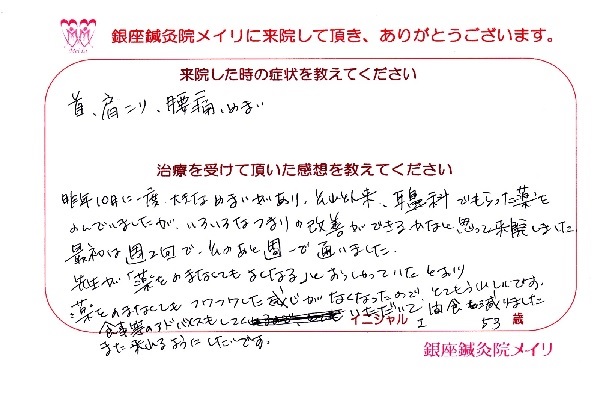 Meilli
銀座鍼灸院メイリに来院して頂き、ありがとうございます。
来院した時の症状を教えてください
首、肩こり、腰痛、めまい
治療を受けて頂いた感想を教えてください
昨年10月に一度、大きなめまいがあり、それ以来、耳鼻科でもらった薬を
のんでいましたが、いろいろなつまりの改善ができるかなと思って来院しました。
最初は週2回で、そのあと週一で通いました。
先生が「薬をのまなくてもよくなる」とおっしゃっていたとおり
薬をのまなくてもフワフワした感じがなくなったので、とてもうれしいです。
食事等のアドバイスもして いただいて、間食も減りました
イニシャル I 53 歳
また来れるようにしたいです。
銀座鍼灸院メイリ